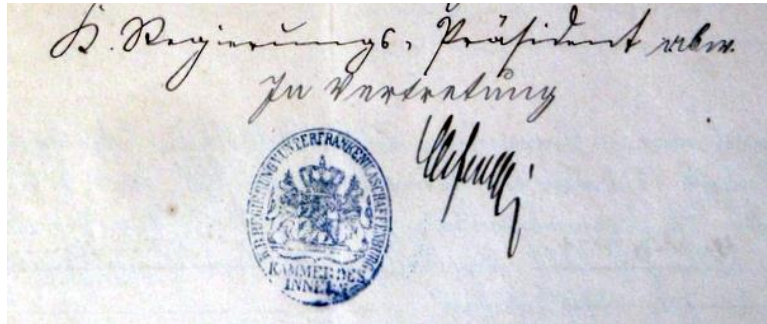 K. Regierungs-Präsident abw.
In Vertretung
K. B. REGIERUNG V. UNTERFRANKEN U. ASCHAFFENBURG
KAMMER DES
INNERN